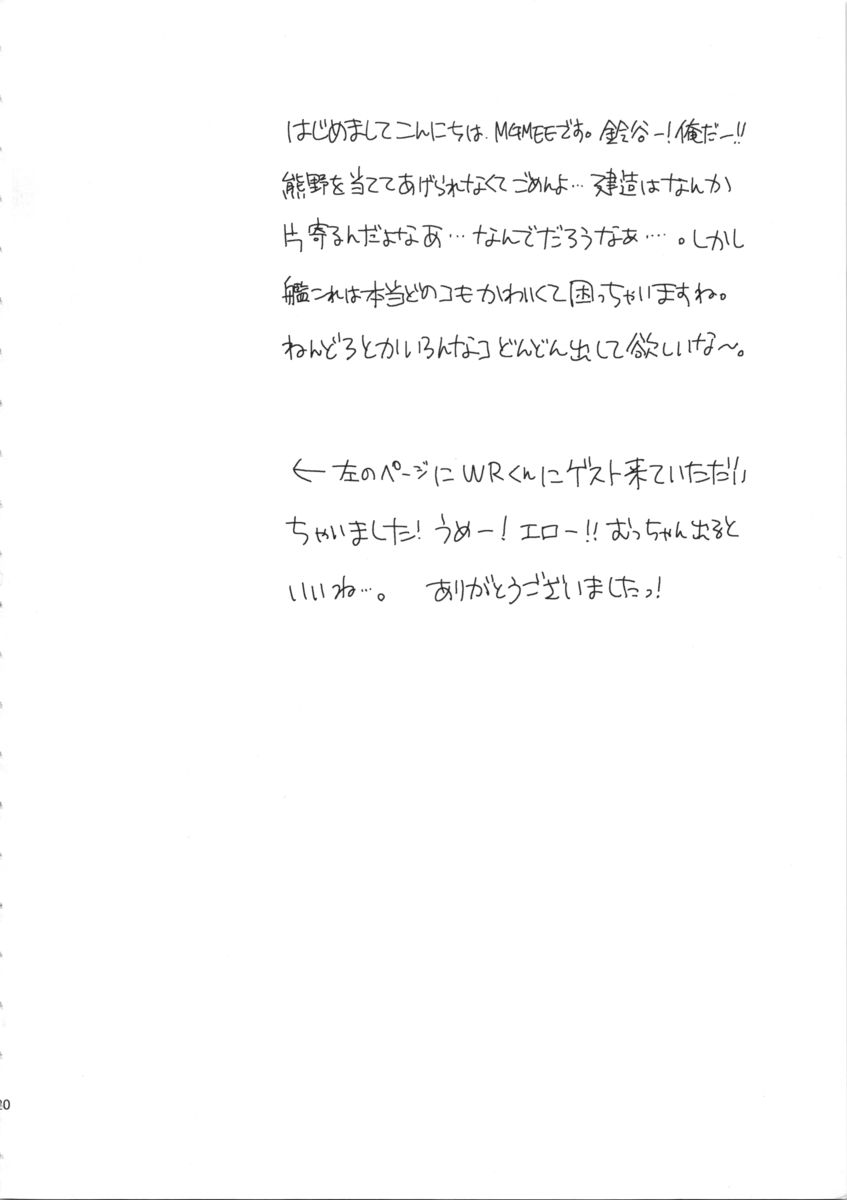 はじめましてこんにちは、M4MEEです。鈴谷ー!俺だー!!
熊野を当ててあげられなくてごめんよ… 建造はなんか
片寄るんだよなあ…なんでだろうなぁ…。しかし
艦これは本当どのコもかわいくて困っちゃいますね。
ねんどろとかいろんなコどんどん出して欲しいな〜。
← 左のページにWRくんにゲスト来ていただい
ちゃいました!うめー!エロー!!むっちゃん出ると
いいね…。 ありがとうございましたっ!
20